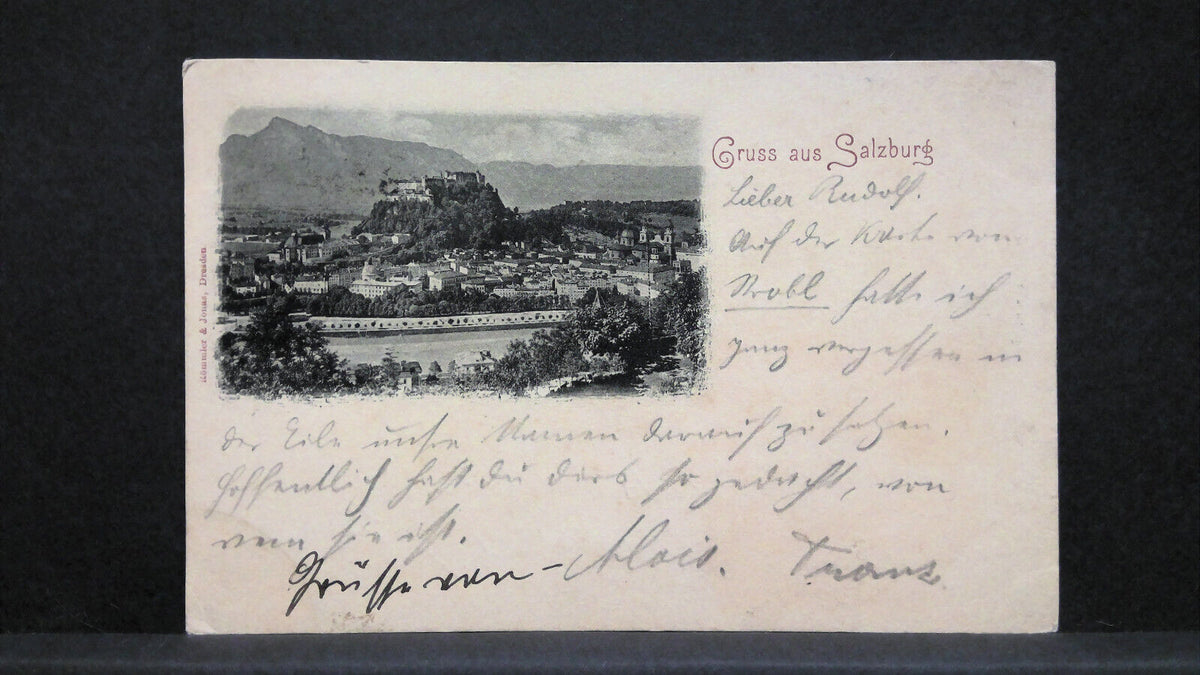 Gruss aus Salzburg
Lieber Rudolf.
Auf der Karte von
Strobl hatte ich
ganz vergessen in
der Eile unsre Namen darauf zu setzen.
Hoffentlich hast du dirs so gedacht, von
wem sie ist.
Grüsse von – Alois. Franz
Römmler & Jonas, Dresden